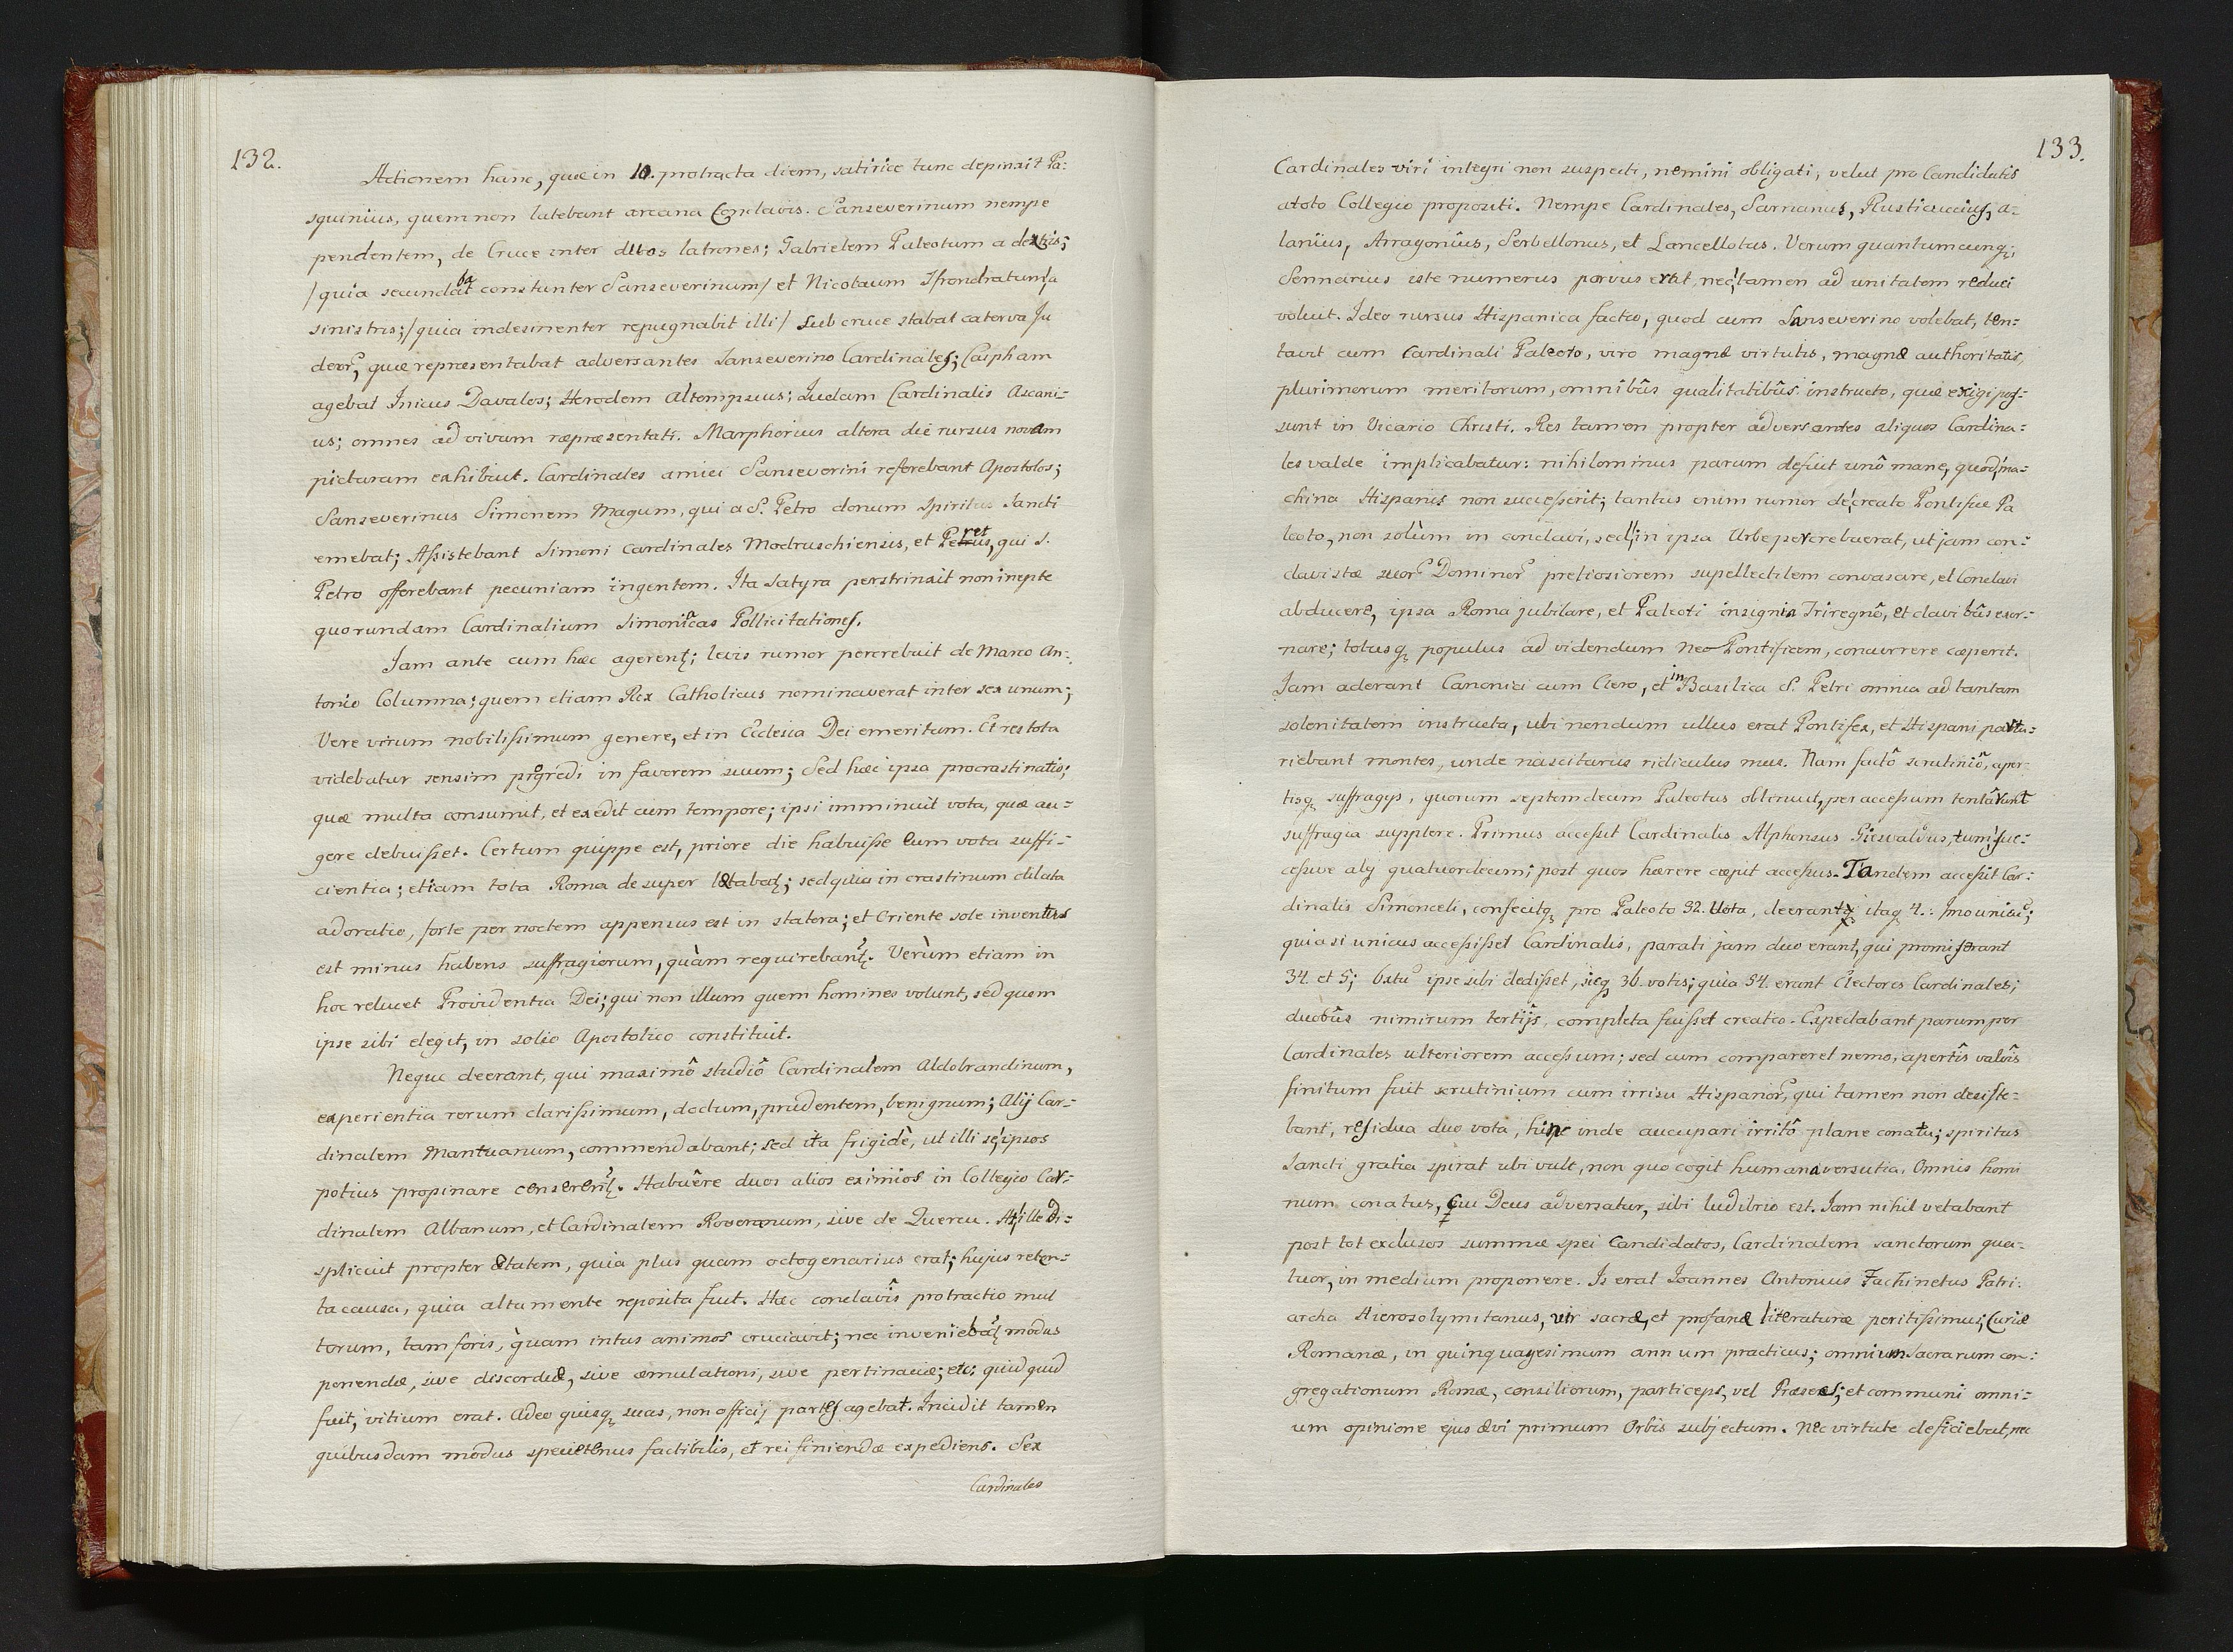 132.
Actionem hanc, quæ in 10. protracta diem, satiricè tunc depinxit Pa:
squinius, quem non latebant arcana Conclavis. Sanseverinum nempe
pendentem, de Cruce inter duos latrones; Gabrielem Paleotum a dextris;
/quia secundabat constanter Sanseverinum/ et Nicolaum Sfrondratum, a
sinistris; /quia indesinenter repugnabit illi/ sub cruce stabat caterva Ju
deor, quæ repræsentabat adversantes Sanseverino Cardinales; Caipham
agebat Inicus Davalos; Herodem Altempsius; Iudam Cardinalis Ascani-
us; omnes ad vivum repræsentati. Marphorius altera die rursus novam
picturam exhibuit. Cardinales amici Sanseverini referebant Apostolos;
Sanseverinus Simonem Magum, qui a S. Petro donum Spiritus Sancti
emebat; Assistebant Simoni Cardinales Modruschiensis, et Peret, qui S.
Petro offerebant pecuniam ingentem. Ita Satyra perstrinxit non inepte
quorundam Cardinalium Simoniacas Pollicitationes.
Iam ante cum hæc agerent; levis rumor percrebuit de Marco An:
tonio Columna; quem etiam Rex Catholicus nominaverat inter sex unum;
Vere virum nobilissimum genere, et in Ecclesia Dei emeritum. Et res tota
videbatur sensim progredi in favorem suum; Sed hæc ipsa procrastinatio;
quæ multa consumit, et exedit cum tempore; ipsi imminuit vota, quæ au=
gere debuisset. Certum quippe est, priore die habuisse eum vota suffi-
cientia; etiam tota Roma desuper lætabat; sed quia in crastinum dilata
adoratio, forte per noctem appensus est in statera; et Oriente sole inventus
est minus habens suffragiorum, quàm requirebant. Verùm etiam in
hoc relucet Providentia Dei; qui non illum quem homines volunt, sed quem
ipse sibi elegit, in solio Apostolico constituit.
Neque deerant, qui maximô studiô Cardinalem Aldobrandinum,
experientia rerum clarissimum, doctum, prudentem, benignum; Alij Car-
dinalem Mantuanum, commendabant; sed ita frigidè, ut illi se ipsos
potius propinare censerent. Habuêre duos alios eximios in Collegio Car-
dinalem Albanum, et Cardinalem Roveranum, sive de Quercu. At ille di-
splicuit propter ætatem, quia plus quam octogenarius erat; hujus reten-
ta causa, quia altamente reposita fuit. Hæc conclavîs protractio mul
torum, tam foris, quam intus animos cruciavit; nec inveniebat modus
ponendæ, sive discordiæ, sive æmulationi, sive pertinaciæ; etc: quid quid
fuit, vitium erat. Adeo quisq suas, non officij partes agebat. Incidit tamen
quibusdam modus specietenus factibilis, et rei finiendæ expediens. Sex
Cardinales
133.
Cardinales viri integri non suspecti, nemini obligati, velut pro Candidatis
a toto Collegio propositi. Nempe Cardinales, Sarnanus, Rusticuccius, A-
lanius, Arragonius, Serbellonus, et Lancellotus. Verum quantumcunq;
Sennarius iste numerus parvus erat, nec tamen ad unitatem reduci
voluit. Ideo rursus Hispanica factio, quod cum Sanseverino volebat, ten:
tavit cum Cardinali Paleoto, viro magnæ virtutis, magnæ authoritatis,
plurimorum meritorum, omnibûs qualitatibûs instructo, quæ exigi pos-
sunt in Vicario Christi. Res tamen propter adversantes aliquos Cardina=
les valde implicabatur: nihilominus parum defuit unô mane, quod ma-
china Hispanis non successerit; tantus enim rumor de creato Pontifice Pa
leoto, non solùm in conclavi, sed in ipsa Urbe percrebuerat, ut jam con:
clavistæ suor Dominor pretiosiorem supellectilem convasare, et Conclavi
abducere, ipsa Roma jubilare, et Paleoti insignia Triregnô, et clavibûs exor:
nare; totusq populus ad videndum Neo Pontificem, concurrere cæperit.
Iam aderant Canonici cum Clero, et in Basilica S. Petri omnia ad tantam
solenitatem instructa, ubi nondum ullus erat Pontifex, et Hispani partu:
riebant montes, unde nasciturus ridiculus mus. Nam factô scrutiniô, aper-
tisq suffragijs, quorum septemdecim Paleotus obtinuit, per accessum tentârunt
suffragia supplere. Primus accessit Cardinalis Alphonsus Giesvaldus, tum suc-
cessive alij quatuordecim; post quos hærere cæpit accessus. Tandem accessit Car:
dinalis Simonceli, confecitq pro Paleoto 32. Vota, deerant itaq 4. Imo unicu;
quia si unicus accessisset Cardinalis, parati jam duo erant, qui promiserant
34. et 5; 6xtu ipse sibi dedisset, sicq 36. votis; quia 54. erant Electores Cardinales;
duobûs nimirum tertijs, completa fuisset creatio. Expectabant parumper
Cardinales ulteriorem accessum; sed cum compareret nemo, apertîs valvîs
finitum fuit scrutinium cum irrisu Hispanor, qui tamen non desiste-
bant, residua duo vota, hinc inde aucupari irritô plane conatu; spiritus
Sancti gratia spirat ubi vult, non quo cogit humana versutia. Omnis homi
num conatus, cui Deus adversatur, sibi ludibrio est. Iam nihil vetabant
post tot exclusos summæ spei Candidatos, Cardinalem sanctorum qua-
tuor, in medium proponere. Is erat Ioannes Antonius Fachinetus Patri:
archa Hierosolymitanus, vir sacræ, et profanæ literaturæ peritissimus; Curiæ
Romanæ, in quinquagesimum annum practicus; omnium sacrarum con:
gregationum Romæ, consiliorum, particeps, vel Præses; et communi omni-
um opinione ejus ævi primum Orbis subjectum. Nec virtute deficiebat, nec